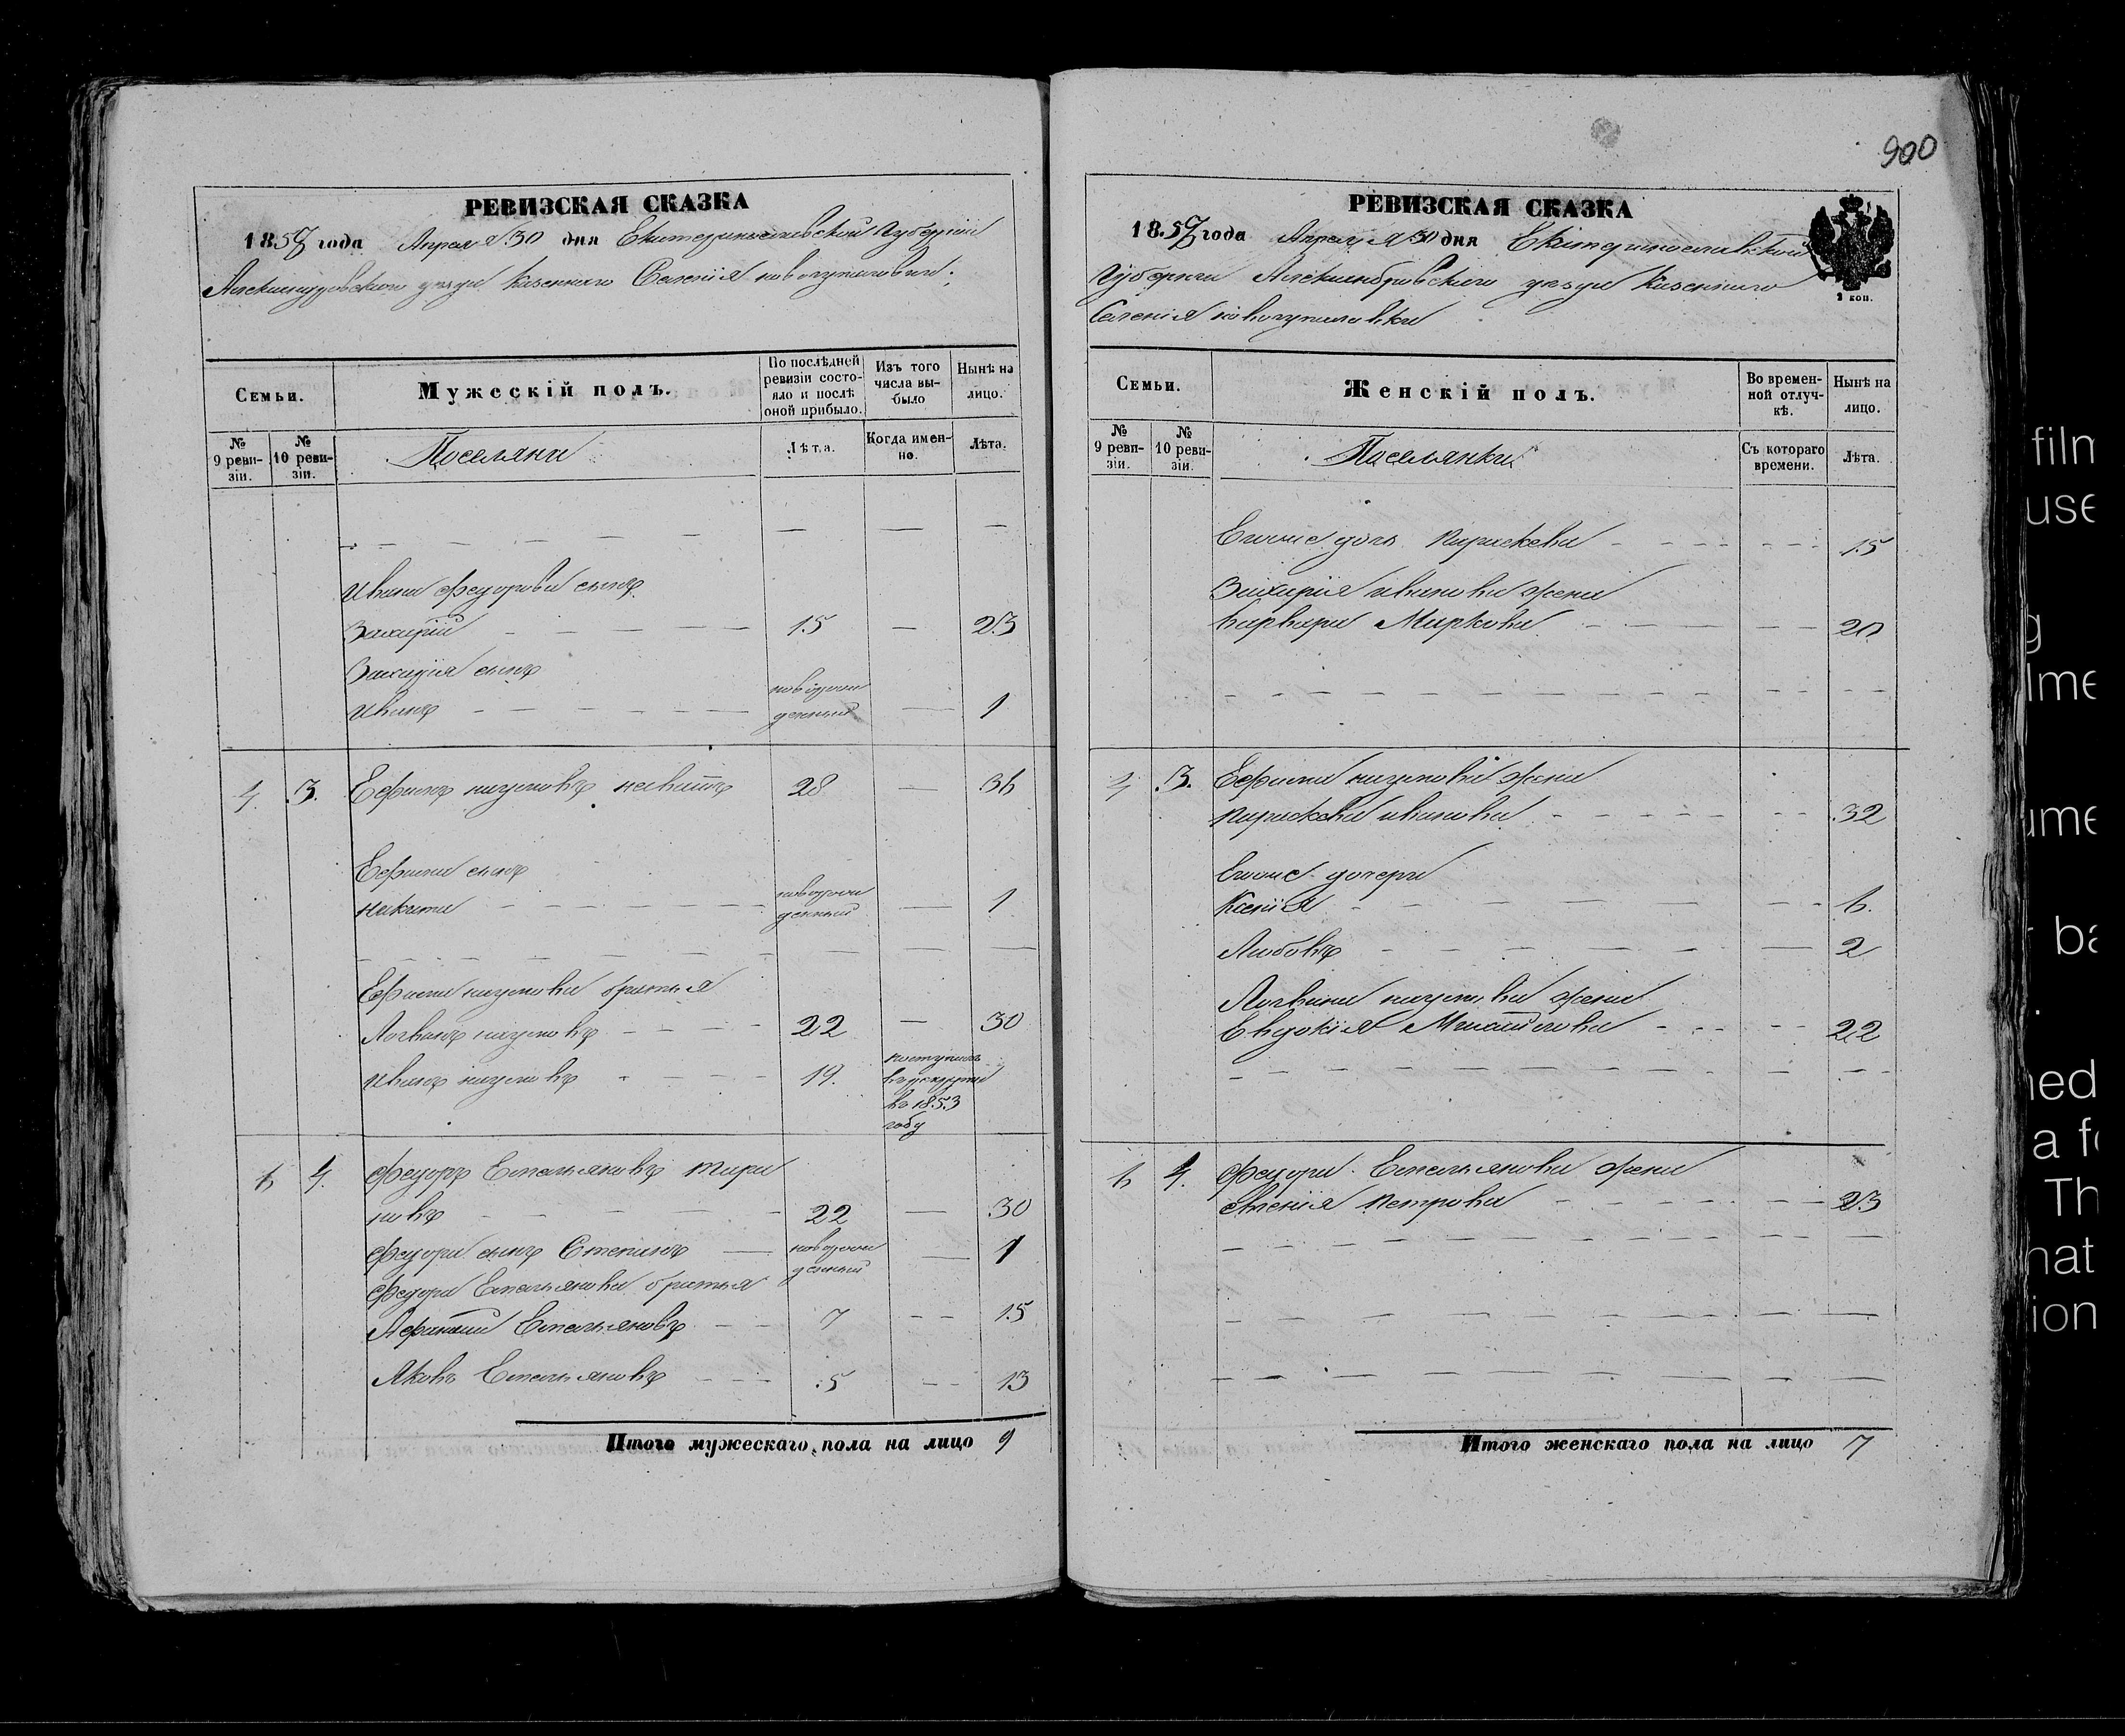 900
РЕВИЗСКАЯ СКАЗКА
1857 года Апреля 30 дня Екатеринославской Губернии
Александровского уезда Казенного Селения
Семьи.
Мужескій полъ.
По послѣдней ревизіи состояло и послѣ оной прибыло.
Изъ того числа выбыло
Нынѣ на лицо.
№ 9 ревизіи.
№ 10 ревизіи.
Поселяне
Лѣта.
Когда именно.
Лѣта.
Ивана Федорова сынъ
Захарій 15 23
Захарія сынъ
Иванъ новорожденный 1
4. 3. Ефимъ Наумовъ 28 36
Ефима сынъ
Никита новорожденный 1
Ефима Наумова братья
Логвинъ Наумовъ 22 30
Иванъ Наумовъ 19. поступилъ в рекруты въ 1853 году
6 4. Федоръ Емельяновъ Тара
новъ 22 30
Федора сынъ Степанъ новорожденный 1
Федора Емельянова братья
Афанасій Емельяновъ 7 15
Яковъ Емельяновъ 5 13
Итого мужескаго пола на лицо 9
РЕВИЗСКАЯ СКАЗКА
1857 года Апреля 30 дня Екатеринославской
Губернии Александровского уезда Казенного
Селения
2 коп.
Семьи.
Женскій полъ.
Во временной отлучкѣ.
Нынѣ на лицо.
№ 9 ревизіи.
№ 10 ревизіи.
Поселянки
Съ котораго времени.
Лѣта.
дочь Параскева 15
Захарія Иванова жена
Варвара Маркова 20
4 3. Ефима Наумова жена
Параскева Иванова 32
дочери
Ксенія 6.
Любовь 2
Логвина Наумова жена
Евдокія Михайлова 22
6 4. Федора Емельянова жена
Петрова 23
Итого женскаго пола на лицо 7